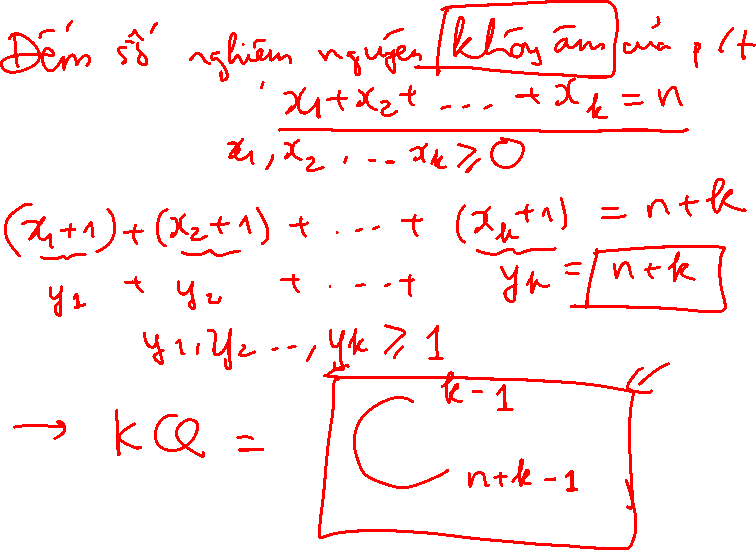 Đếm số nghiệm nguyên không âm của p/t
x₁+x₂+ ... + x_k = n
x₁, x₂ ... x_k ≥ 0
(x₁+1)+(x₂+1) + ... + (x_k+1) = n+k
y₁ + y₂ + ...+ y_k = n+k
y₁, y₂ ..., y_k ≥ 1
→ KQ = C_{n+k-1}^{k-1}